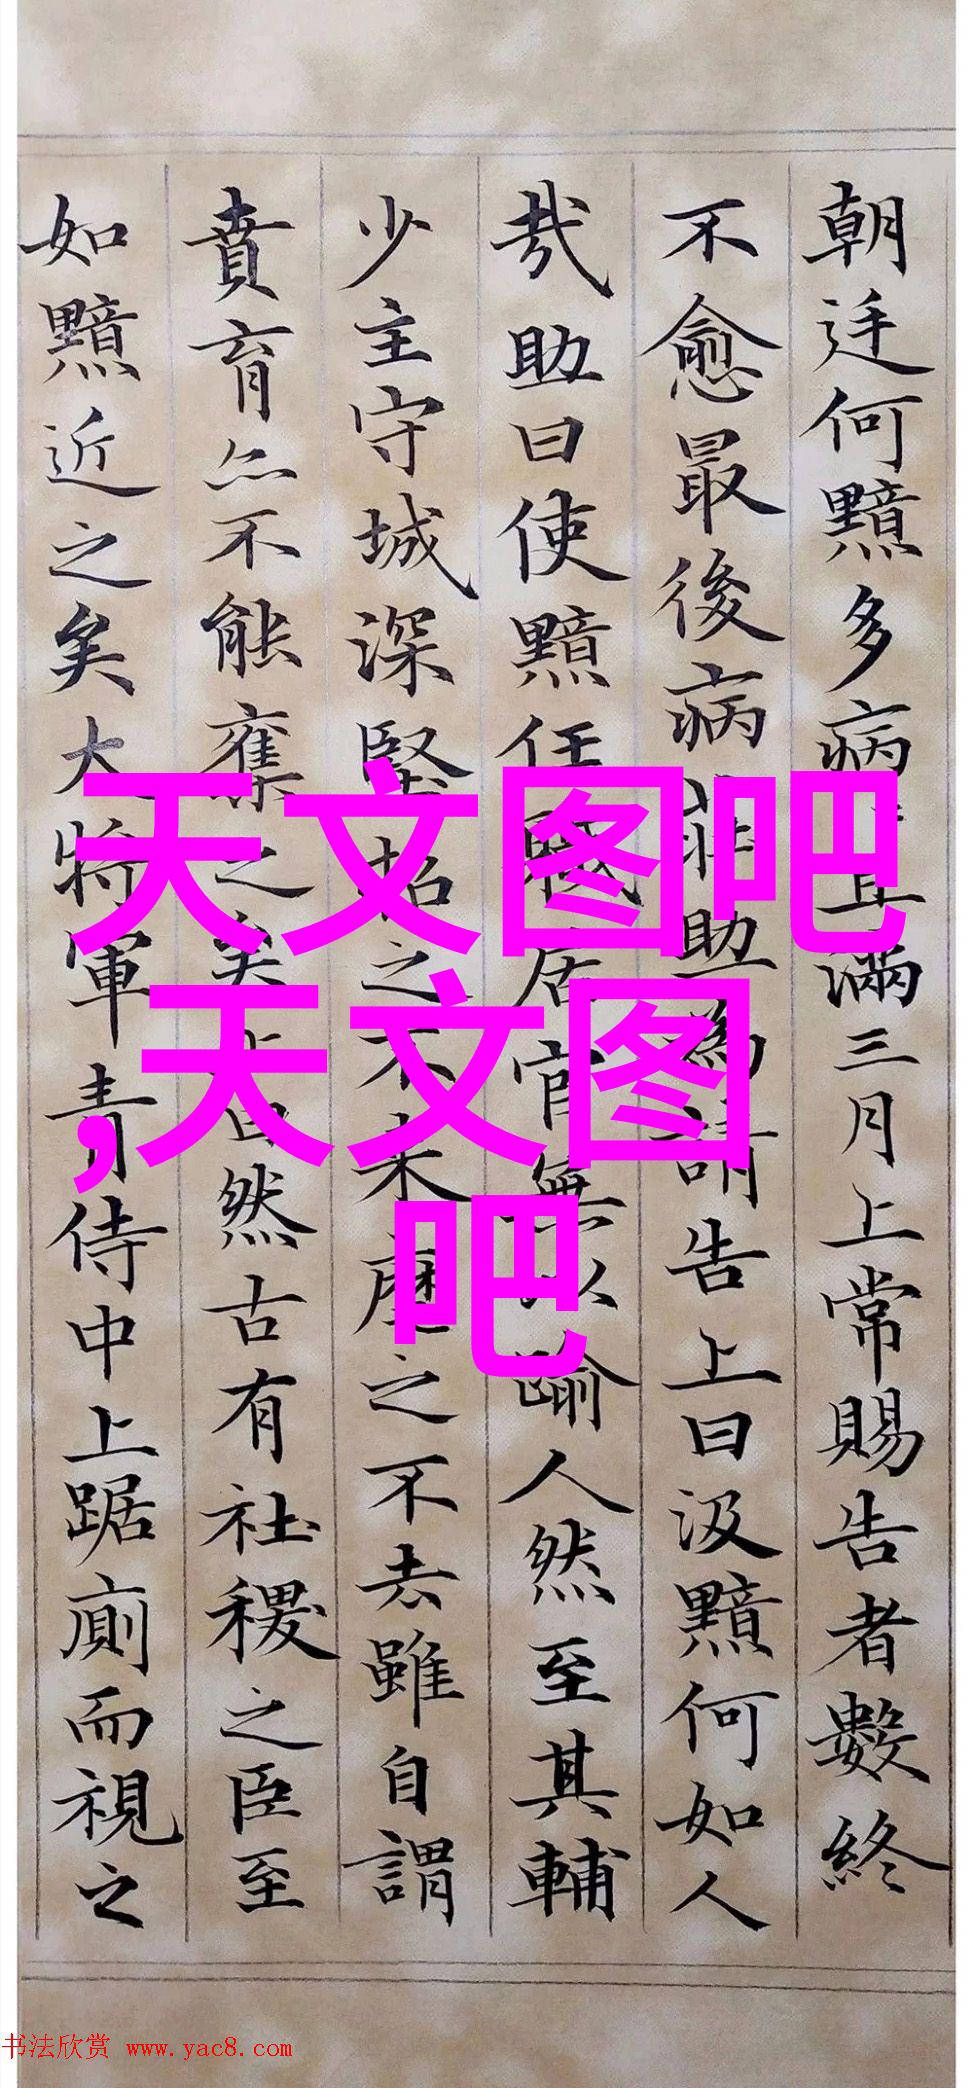 朝廷何黯多病且滿三月上常賜告者數終
不愈最後病莊助為請告上曰汲黯何如人
哉助曰使黯任職居官無以踰人然至其輔
少主守城深堅招之不来麾之不去雖自謂
賁育亦不能奪之矣上曰然古有社稷之臣至
如黯近之矣大將軍青侍中上踞廁而視之
天文图吧
,天文图
吧
书法欣赏 www.yac8.com